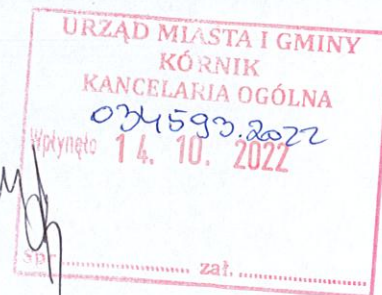 URZĄD MIASTA I GMINY
KÓRNIK
KANCELARIA OGÓLNA
034593.2022
Wpłynęło 14. 10. 2022
spr. .................... zał. ....................